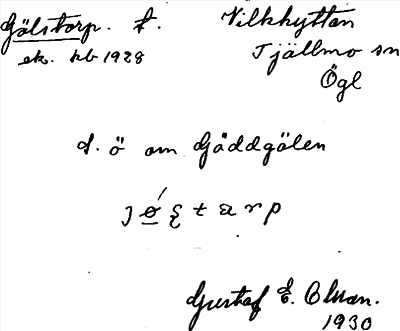 Gölstorp. t. Vilkhyttan
ek. kb 1928 Tjällmo sn
Ögl
S. ö om Gäddgölen
Gustaf E. Olsson.
1930